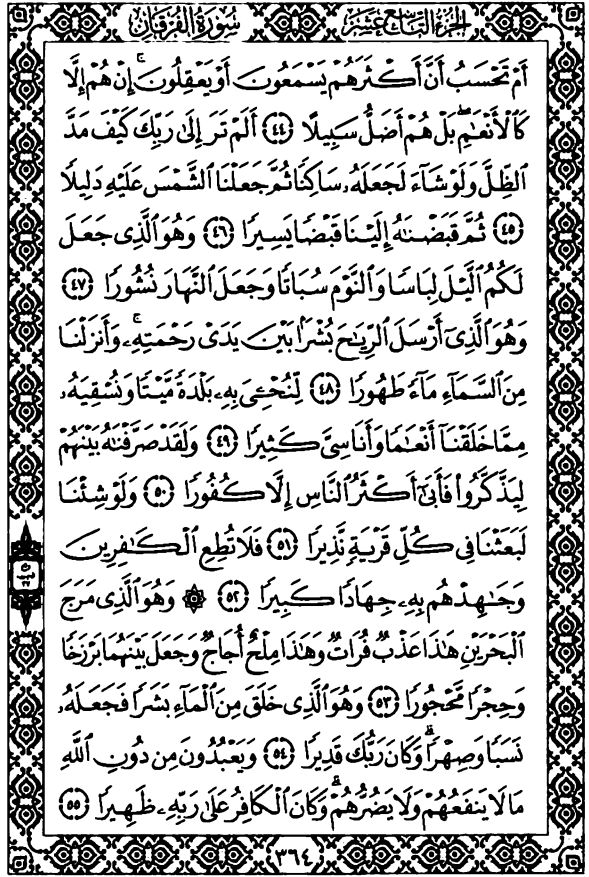 الجزء التاسع عشر
سورة الفرقان
أَمْ تَحْسَبُ أَنَّ أَكْثَرَهُمْ يَسْمَعُونَ أَوْ يَعْقِلُونَۚ إِنْ هُمْ إِلَّا
كَالْأَنْعَٰمِۖ بَلْ هُمْ أَضَلُّ سَبِيلًا ٤٤ أَلَمْ تَرَ إِلَىٰ رَبِّكَ كَيْفَ مَدَّ
ٱلظِّلَّ وَلَوْ شَآءَ لَجَعَلَهُۥ سَاكِنًا ثُمَّ جَعَلْنَا ٱلشَّمْسَ عَلَيْهِ دَلِيلًا
٤٥ ثُمَّ قَبَضْنَٰهُ إِلَيْنَا قَبْضًا يَسِيرًا ٤٦ وَهُوَ ٱلَّذِى جَعَلَ
لَكُمُ ٱلَّيْلَ لِبَاسًا وَٱلنَّوْمَ سُبَاتًا وَجَعَلَ ٱلنَّهَارَ نُشُورًا ٤٧
وَهُوَ ٱلَّذِىٓ أَرْسَلَ ٱلرِّيَٰحَ بُشْرًۢا بَيْنَ يَدَىْ رَحْمَتِهِۦۚ وَأَنزَلْنَا
مِنَ ٱلسَّمَآءِ مَآءً طَهُورًا ٤٨ لِّنُحْـِۧىَ بِهِۦ بَلْدَةً مَّيْتًا وَنُسْقِيَهُۥ
مِمَّا خَلَقْنَآ أَنْعَٰمًا وَأَنَاسِىَّ كَثِيرًا ٤٩ وَلَقَدْ صَرَّفْنَٰهُ بَيْنَهُمْ
لِيَذَّكَّرُوا۟ فَأَبَىٰٓ أَكْثَرُ ٱلنَّاسِ إِلَّا كُفُورًا ٥٠ وَلَوْ شِئْنَا
لَبَعَثْنَا فِى كُلِّ قَرْيَةٍ نَّذِيرًا ٥١ فَلَا تُطِعِ ٱلْكَٰفِرِينَ
وَجَٰهِدْهُم بِهِۦ جِهَادًا كَبِيرًا ٥٢ ۞ وَهُوَ ٱلَّذِى مَرَجَ
ٱلْبَحْرَيْنِ هَٰذَا عَذْبٌ فُرَاتٌ وَهَٰذَا مِلْحٌ أُجَاجٌ وَجَعَلَ بَيْنَهُمَا بَرْزَخًا
وَحِجْرًا مَّحْجُورًا ٥٣ وَهُوَ ٱلَّذِى خَلَقَ مِنَ ٱلْمَآءِ بَشَرًا فَجَعَلَهُۥ
نَسَبًا وَصِهْرًاۗ وَكَانَ رَبُّكَ قَدِيرًا ٥٤ وَيَعْبُدُونَ مِن دُونِ ٱللَّهِ
مَا لَا يَنفَعُهُمْ وَلَا يَضُرُّهُمْۗ وَكَانَ ٱلْكَافِرُ عَلَىٰ رَبِّهِۦ ظَهِيرًا ٥٥
٣٦٤